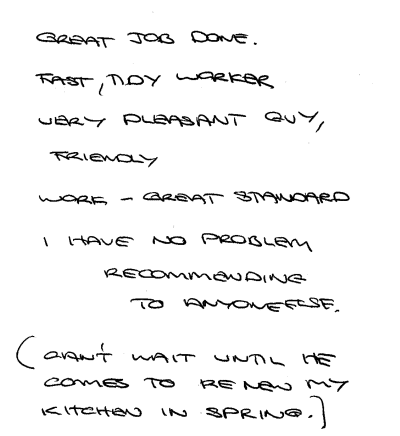 GREAT JOB DONE.
FAST, TIDY WORKER
VERY PLEASANT GUY,
FRIENDLY
WORK - GREAT STANDARD
I HAVE NO PROBLEM
RECOMMENDING
TO ANYONE ELSE.
(CAN'T WAIT UNTIL HE
COMES TO RENEW MY
KITCHEN IN SPRING.)